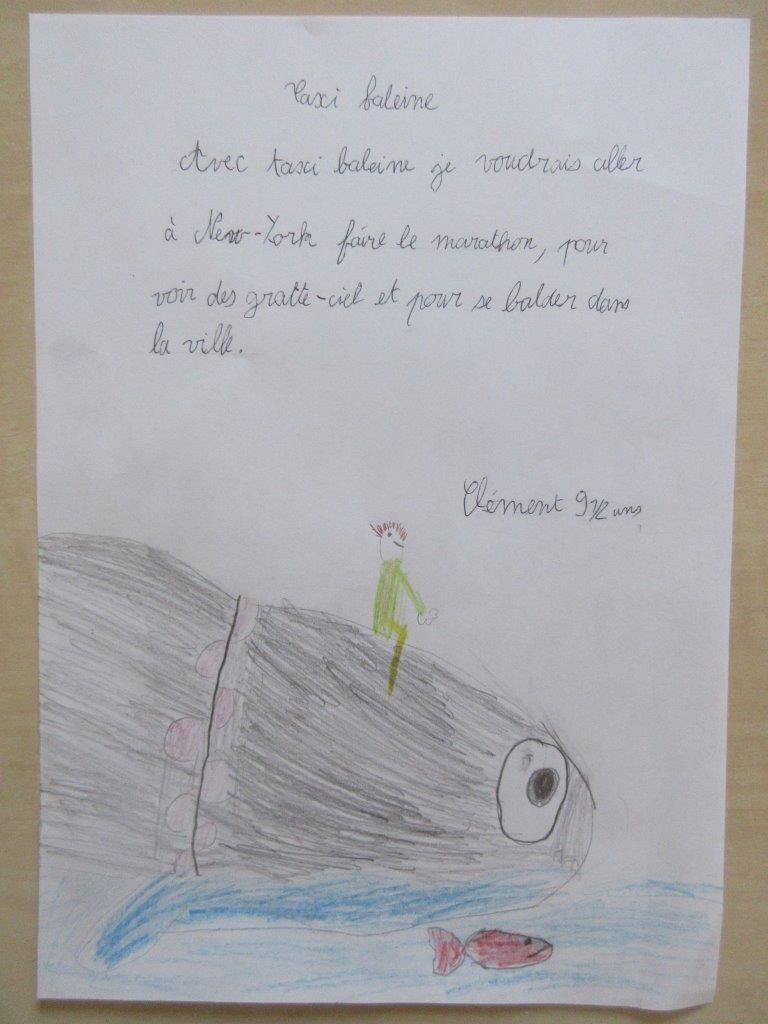 Taxi baleine
Avec taxi baleine je voudrais aller
à New-York faire le marathon, pour
voir des gratte-ciel et pour se balder dans
la ville.
Clément 9 1/2 ans